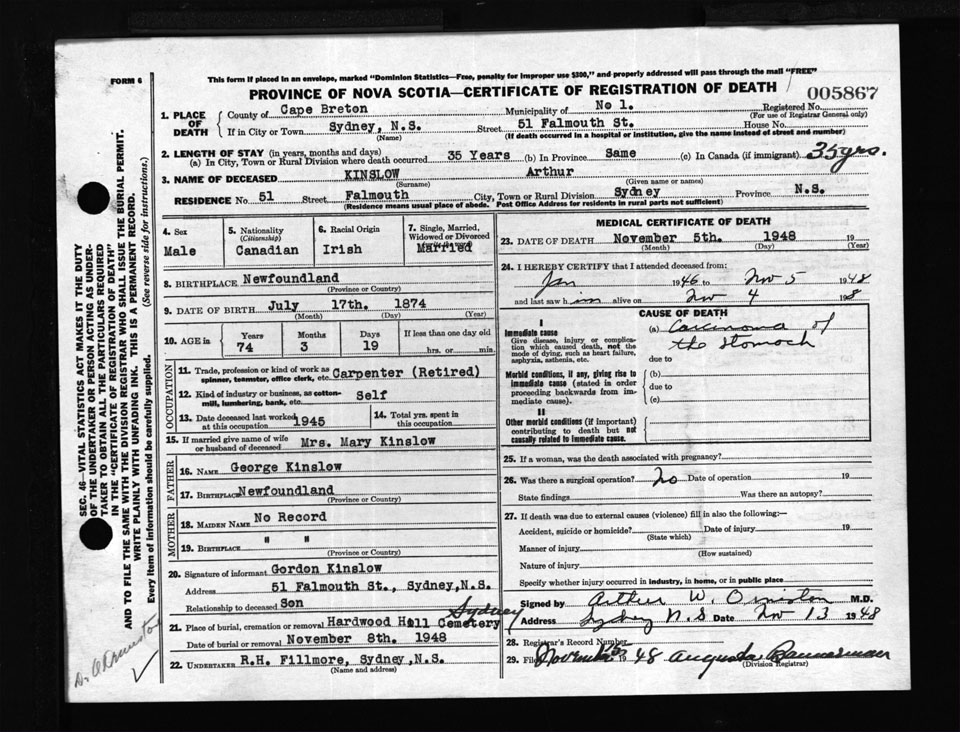 FORM 6
This form if placed in an envelope, marked "Dominion Statistics—Free, penalty for improper use $300," and properly addressed will pass through the mail "FREE"
PROVINCE OF NOVA SCOTIA—CERTIFICATE OF REGISTRATION OF DEATH
005867
1. PLACE OF DEATH
County of Cape Breton Municipality of No 1. Registered No.
(For use of Registrar General only)
If in City or Town Sydney, N.S. Street 51 Falmouth St. House No.
(Name) (If death occurred in a hospital or institution, give the name instead of street and number)
2. LENGTH OF STAY (in years, months and days)
(a) In City, Town or Rural Division where death occurred 35 Years (b) In Province Same (c) In Canada (if immigrant) 35 yrs.
3. NAME OF DECEASED KINSLOW Arthur
(Surname) (Given name or names)
RESIDENCE No. 51 Street Falmouth City, Town or Rural Division Sydney Province N.S.
(Residence means usual place of abode. Post Office Address for residents in rural parts not sufficient)
4. Sex
Male
5. Nationality
(Citizenship)
Canadian
6. Racial Origin
Irish
7. Single, Married,
Widowed or Divorced
Married
8. BIRTHPLACE Newfoundland
(Province or Country)
9. DATE OF BIRTH July 17th. 1874
(Month) (Day) (Year)
10. AGE in
Years Months Days If less than one day old
74 3 19 hrs. or min.
OCCUPATION
11. Trade, profession or kind of work as
spinner, teamster, office clerk, etc. Carpenter (Retired)
12. Kind of industry or business, as cotton-
mill, lumbering, bank, etc. Self
13. Date deceased last worked
at this occupation 1945
14. Total yrs. spent in
this occupation
15. If married give name of wife
or husband of deceased Mrs. Mary Kinslow
FATHER
16. NAME George Kinslow
17. BIRTHPLACE Newfoundland
(Province or Country)
MOTHER
18. MAIDEN NAME No Record
19. BIRTHPLACE " "
(Province or Country)
20. Signature of informant Gordon Kinslow
Address 51 Falmouth St., Sydney, N.S.
Relationship to deceased Son
21. Place of burial, cremation or removal Hardwood Hill Cemetery Sydney
Date of burial or removal November 8th. 1948
22. UNDERTAKER R.H. Fillmore, Sydney, N.S.
(Name and address)
MEDICAL CERTIFICATE OF DEATH
23. DATE OF DEATH November 5th. 1948 19
(Month) (Day) (Year)
24. I HEREBY CERTIFY that I attended deceased from:
Jan 1946 to Nov 5 1948
and last saw him alive on Nov 4 1948
CAUSE OF DEATH
I
Immediate cause
Give disease, injury or complica-
tion which caused death, not the
mode of dying, such as heart failure,
asphyxia, asthenia, etc.
(a) Carcinoma of
the stomach
due to
Morbid conditions, if any, giving rise to
immediate cause (stated in order
proceeding backwards from im-
mediate cause).
(b)
due to
(c)
II
Other morbid conditions (if important)
contributing to death but not
causally related to immediate cause.
25. If a woman, was the death associated with pregnancy?
26. Was there a surgical operation? No Date of operation 19
State findings Was there an autopsy?
27. If death was due to external causes (violence) fill in also the following:—
Accident, suicide or homicide? Date of injury 19
(State which)
Manner of injury
(How sustained)
Nature of injury
Specify whether injury occurred in industry, in home, or in public place
Signed by Arthur W. Ormiston M.D.
Address Sydney N.S Date Nov 13 1948
28. Registrar's Record Number
29. Filed November 15 1948 Augusta Bannerman
(Division Registrar)
SEC. 46—VITAL STATISTICS ACT MAKES IT THE DUTY
OF THE UNDERTAKER OR PERSON ACTING AS UNDER-
TAKER TO OBTAIN ALL THE PARTICULARS REQUIRED
IN THE "CERTIFICATE OF REGISTRATION OF DEATH"
AND TO FILE THE SAME WITH THE DIVISION REGISTRAR WHO SHALL ISSUE THE BURIAL PERMIT.
WRITE PLAINLY WITH UNFADING INK. THIS IS A PERMANENT RECORD.
Every item of information should be carefully supplied. (See reverse side for instructions.)
Dr. Ormiston